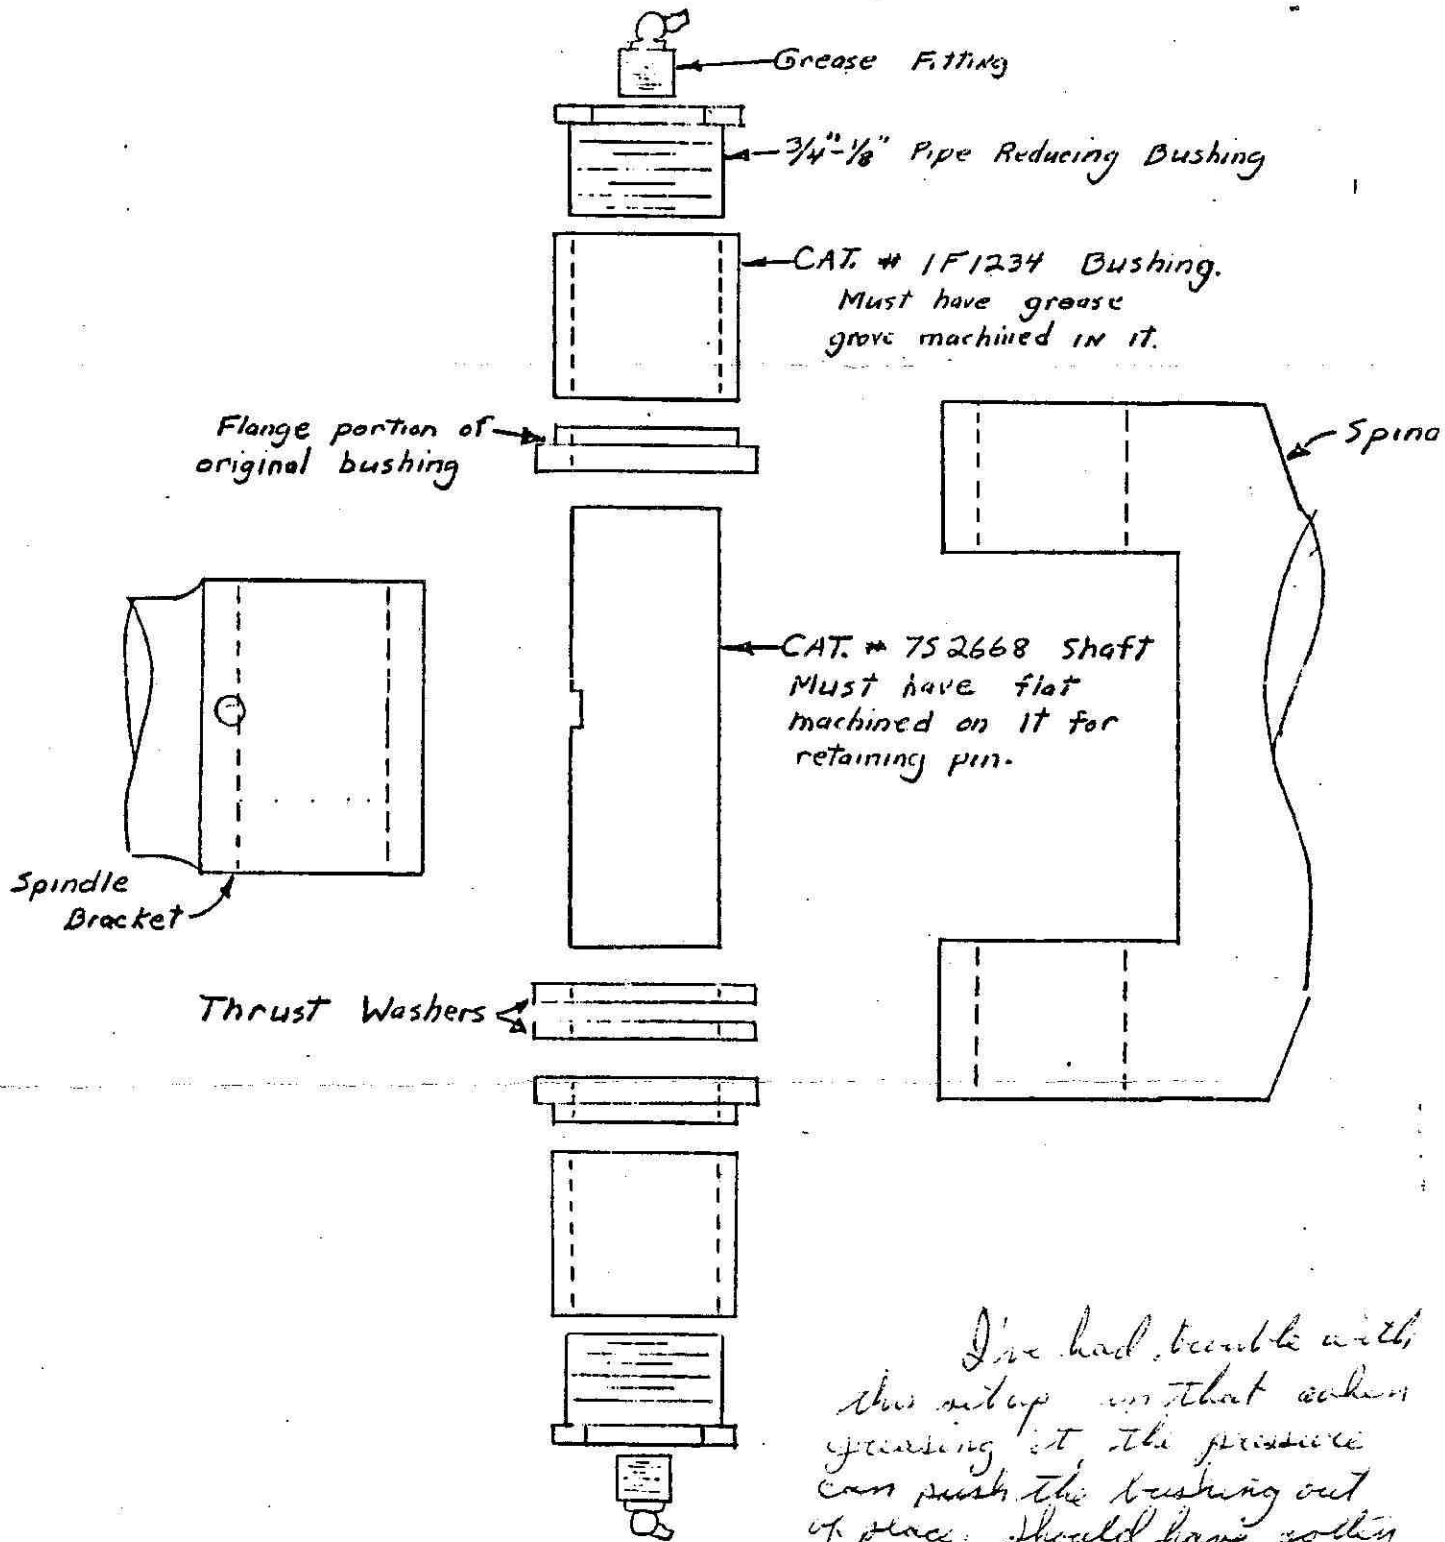 Grease Fitting
3/4"-1/8" Pipe Reducing Bushing
CAT. # 1F1234 Bushing.
Must have grease
grove machined IN it.
Flange portion of
original bushing
Spind
CAT. # 7S2668 Shaft
Must have flat
machined on it for
retaining pin.
Spindle
Bracket
Thrust Washers
I've had trouble with
this setup in that when
greasing it, the pressure
can push the bushing out
of place. Should have gotten